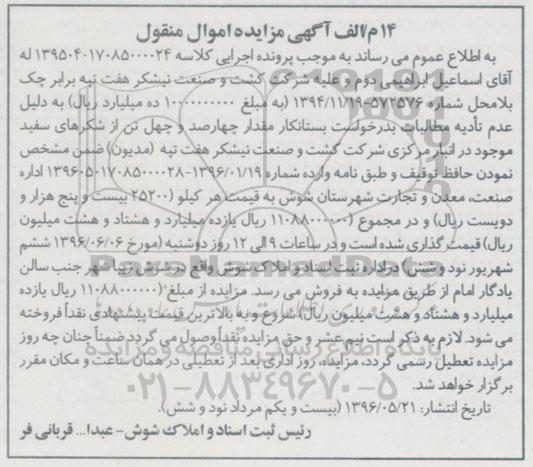 ۱۴م/الف آگهی مزایده اموال منقول
به اطلاع عموم می رساند به موجب پرونده اجرایی کلاسه ۱۳۹۵۰۴۰۱۷۰۸۵۰۰۰۰۲۴ له
آقای اسماعیل ابراهیمی دوم و علیه شرکت کشت و صنعت نیشکر هفت تپه برابر چک
بلامحل شماره ۵۷۲۵۷۶-۱۳۹۴/۱۱/۱۹ (به مبلغ ۱۰۰۰۰۰۰۰۰۰۰ ده میلیارد ریال) به دلیل
عدم تأدیه مطالبات بدرخواست بستانکار مقدار چهارصد و چهل تن از شکرهای سفید
موجود در انبار مرکزی شرکت کشت و صنعت نیشکر هفت تپه (مدیون) ضمن مشخص
نمودن حافظ توقیف و طبق نامه وارده شماره ۱۳۹۶۰۵۰۱۷۰۸۵۰۰۰۰۲۸-۱۳۹۶/۰۱/۱۹ اداره
صنعت، معدن و تجارت شهرستان شوش به قیمت هر کیلو (۲۵۲۰۰ بیست و پنج هزار و
دویست ریال) و در مجموع (۱۱۰۸۸۰۰۰۰۰۰ ریال یازده میلیارد و هشتاد و هشت میلیون
ریال) قیمت گذاری شده است و در ساعات ۹ الی ۱۲ روز دوشنبه (مورخ ۱۳۹۶/۰۶/۰۶ ششم
شهریور نود و شش) در اداره ثبت اسناد و املاک شوش واقع در شوش زیبا شهر جنب سالن
یادگار امام از طریق مزایده به فروش می رسد. مزایده از مبلغ (۱۱۰۸۸۰۰۰۰۰۰ ریال یازده
میلیارد و هشتاد و هشت میلیون ریال) شروع و به بالاترین قیمت پیشنهادی نقداً فروخته
می شود. لازم به ذکر است نیم عشر و حق مزایده نقداً وصول می گردد ضمناً چنان چه روز
مزایده تعطیل رسمی گردد، مزایده، روز اداری بعد از تعطیلی در همان ساعت و مکان مقرر
برگزار خواهد شد.
تاریخ انتشار: ۱۳۹۶/۰۵/۲۱ (بیست و یکم مرداد نود و شش).
رئیس ثبت اسناد و املاک شوش- عبدا... قربانی فر
ParsNamadData
پایگاه اطلاع رسانی مناقصه و مزایده
۰۲۱-۸۸۳۴۹۶۷۰-۵